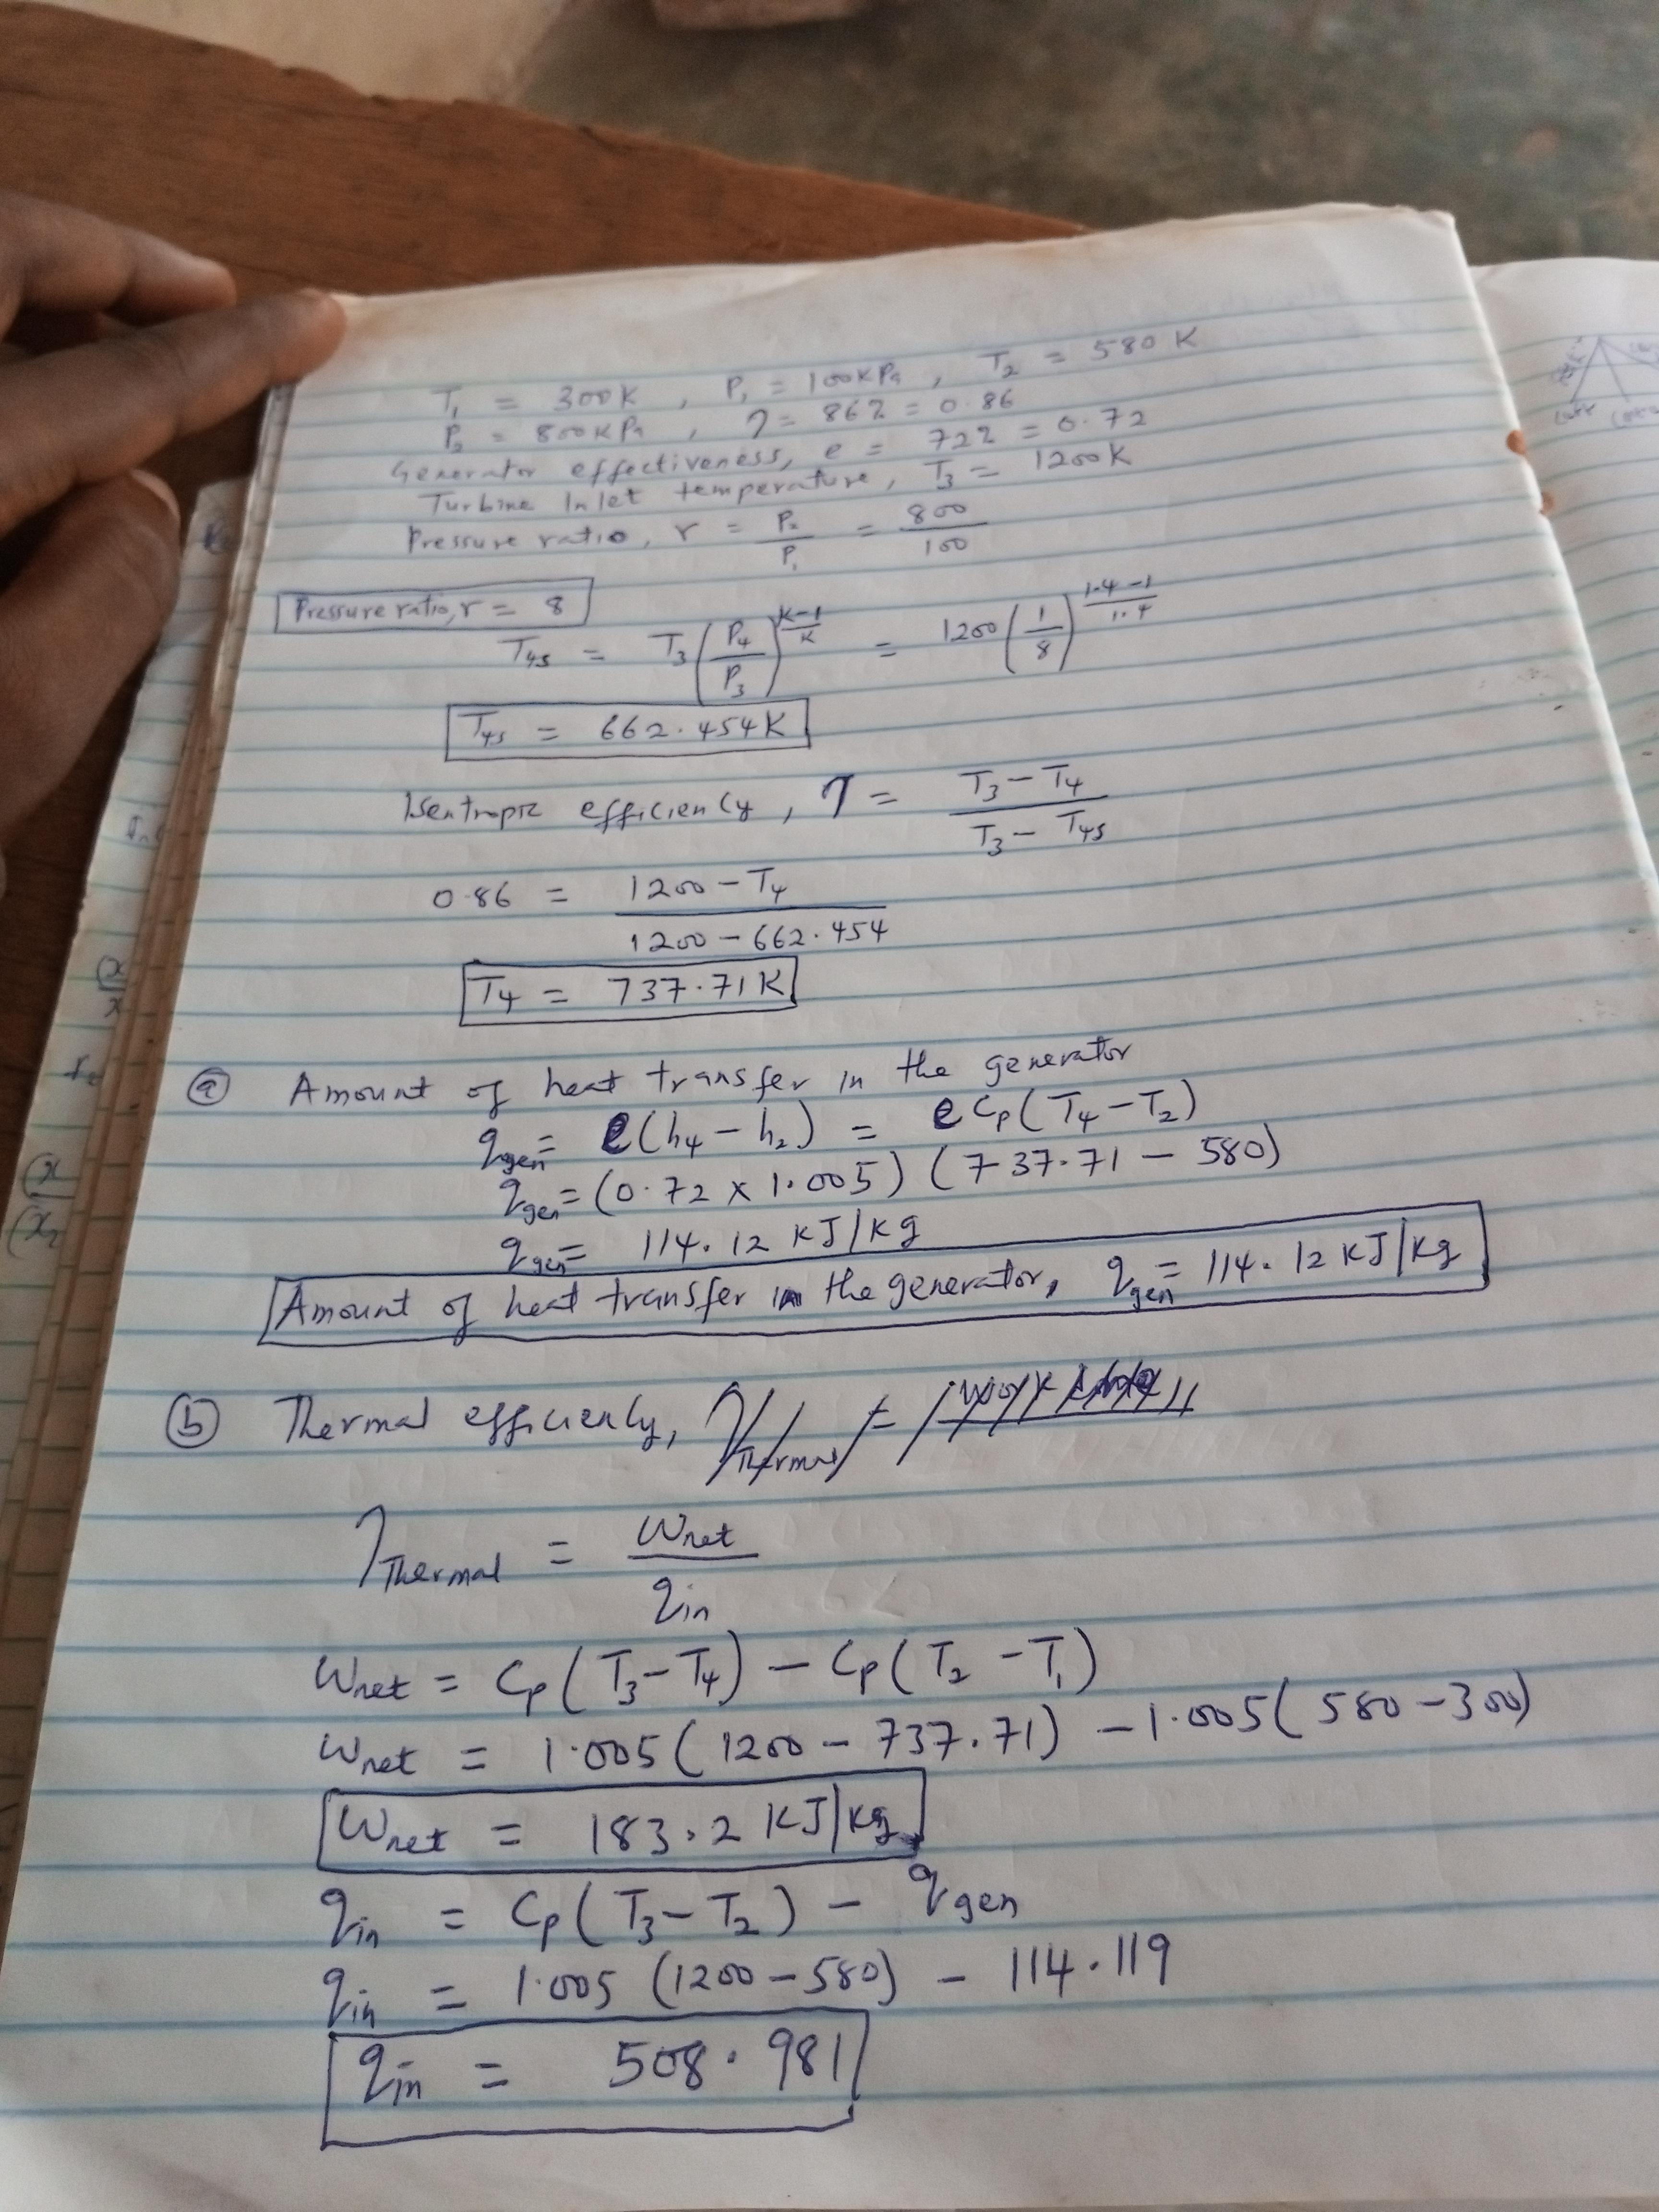 T₁ = 300K , P₁ = 100KPa , T₂ = 580 K
P₂ = 800KPa , η = 86% = 0.86
Generator effectiveness, e = 72% = 0.72
Turbine Inlet temperature, T₃ = 1200K
Pressure ratio, r = P₂/P₁ = 800/100
Pressure ratio, r = 8
T₄s = T₃(P₄/P₃)^((K-1)/K) = 1200(1/8)^((1.4-1)/1.4)
T₄s = 662.454K
Isentropic efficiency, η = (T₃ - T₄)/(T₃ - T₄s)
0.86 = (1200 - T₄)/(1200 - 662.454)
T₄ = 737.71K
(a) Amount of heat transfer in the generator
q_gen = e(h₄ - h₂) = e Cp(T₄ - T₂)
q_gen = (0.72 x 1.005)(737.71 - 580)
q_gen = 114.12 KJ/kg
Amount of heat transfer in the generator, q_gen = 114.12 KJ/kg
(b) Thermal efficiency,
η_Thermal = Wnet/q_in
Wnet = Cp(T₃ - T₄) - Cp(T₂ - T₁)
Wnet = 1.005(1200 - 737.71) - 1.005(580 - 300)
Wnet = 183.2 KJ/kg
q_in = Cp(T₃ - T₂) - q_gen
q_in = 1.005 (1200 - 580) - 114.119
q_in = 508.981